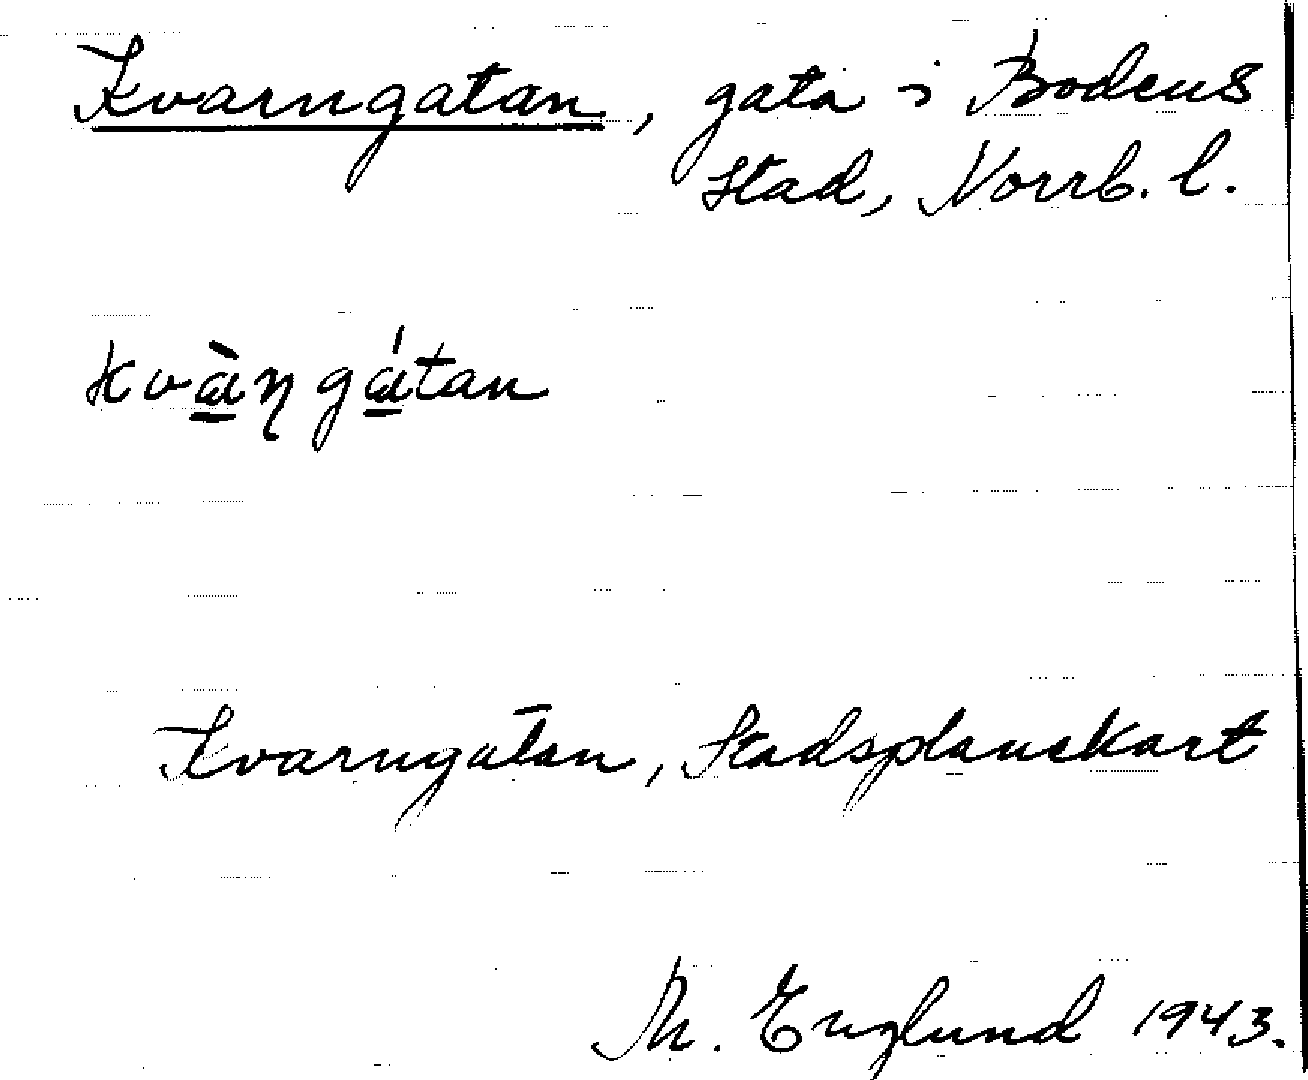 Kvarngatan, gata i Bodens
stad, Norrb. l.
kvàŋgátan
Kvarngatan, Stadsplanekart
Th. Englund 1943.